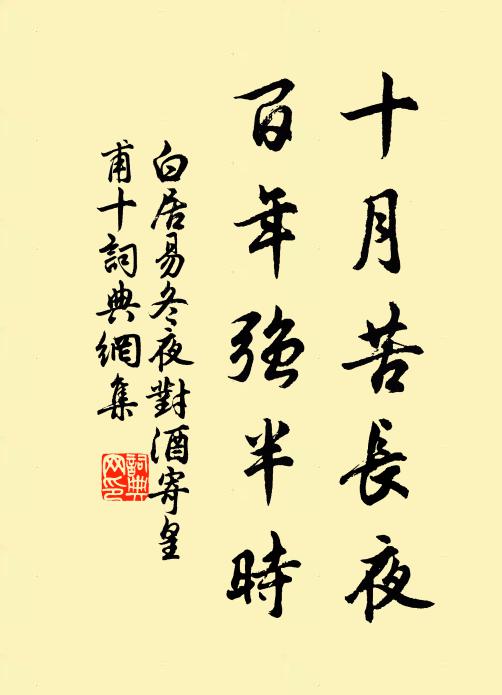 十月苦長夜
百年強半時
白居易冬夜對酒寄皇
甫十詞典網集
詞典
网印